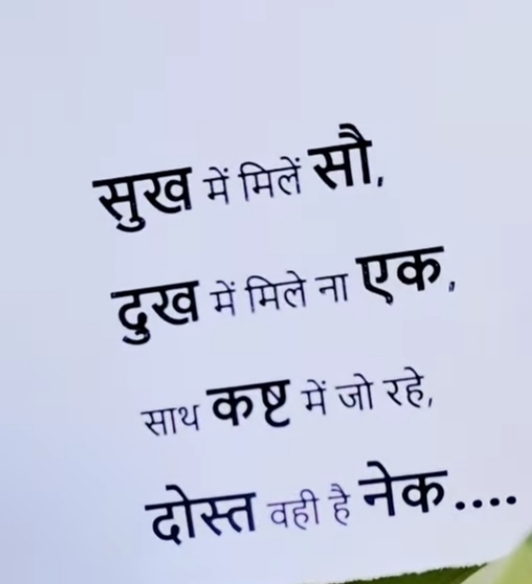 सुख में मिलें सौ,
दुख में मिले ना एक,
साथ कष्ट में जो रहे,
दोस्त वही है नेक....